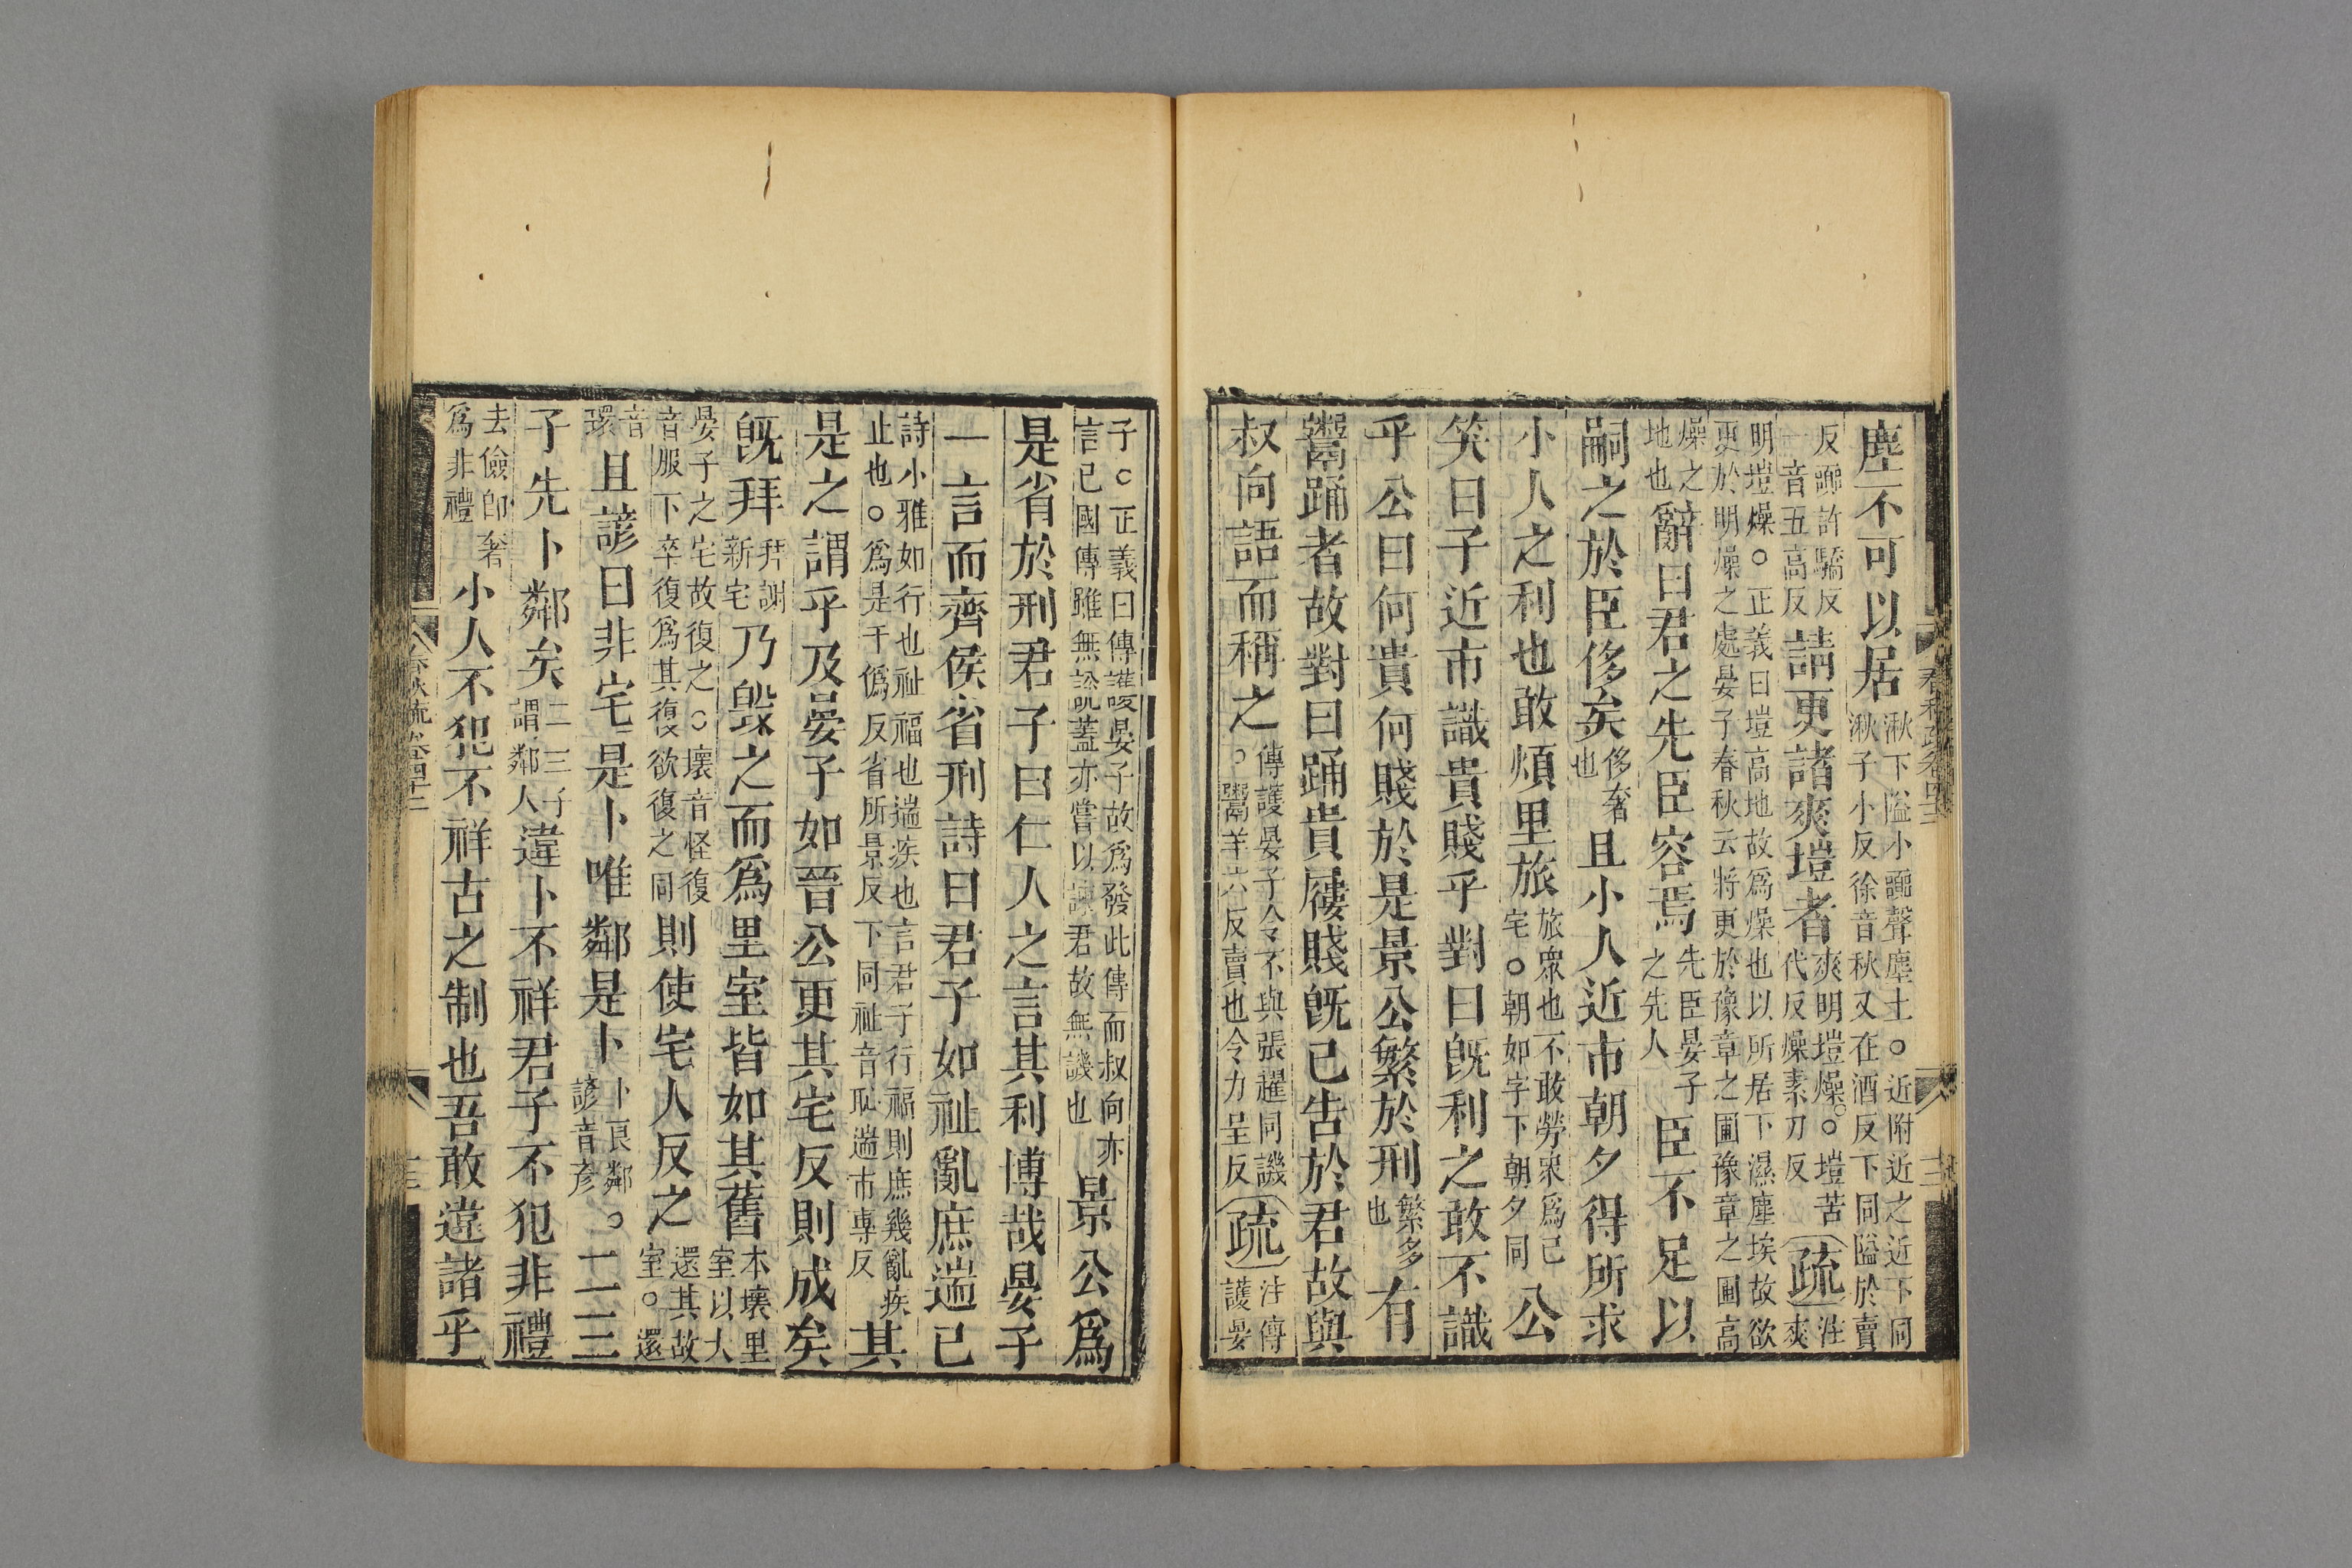 塵不可以居湫下隘小囂聲塵土○近附近之近下同湫子小反徐音秋又在酒反下同隘於賣
反囂許驕反一音五高反請更諸爽塏者爽明塏燥○塏苦代反燥素刀反疏注爽
明塏燥○正義曰塏高地故爲燥也以所居下濕塵埃故欲更於明燥之處晏子春秋云將更於豫章之圃豫章之圃高
燥之地也辭曰君之先臣容焉先臣晏子之先人臣不足以
嗣之於臣侈矣侈奢也且小人近市朝夕得所求
小人之利也敢煩里旅旅衆也不敢勞衆爲己宅○朝如字下朝夕同公
笑曰子近市識貴賤乎對曰旣利之敢不識
乎公曰何貴何賤於是景公繁於刑繁多也有
鬻踊者故對曰踊貴屨賤旣已告於君故與
叔向語而稱之傳護晏子令不與張趯同譏○鬻羊六反賣也令力呈反疏注傳護晏
子○正義曰傳護晏子故爲發此傳而叔向亦言已國傳雖無訟蓋亦嘗以諫君故無譏也景公爲
是省於刑君子曰仁人之言其利博哉晏子
一言而齊侯省刑詩曰君子如祉亂庶遄已
詩小雅如行也祉福也遄疾也言君子行福則庶幾亂疾止也○爲是于僞反省所景反下同祉音恥遄市專反其
是之謂乎及晏子如晉公更其宅反則成矣
旣拜拜謝新宅乃毀之而爲里室皆如其舊本壞里室以大
晏子之宅故復之○壞音怪復音服下卒復爲其復欲復之同則使宅人反之還其故室○還
音環且諺曰非宅是卜唯鄰是卜卜良鄰○諺音彥二三
子先卜鄰矣二三子謂鄰人違卜不祥君子不犯非禮
去儉卽奢爲非禮小人不犯不祥古之制也吾敢違諸乎